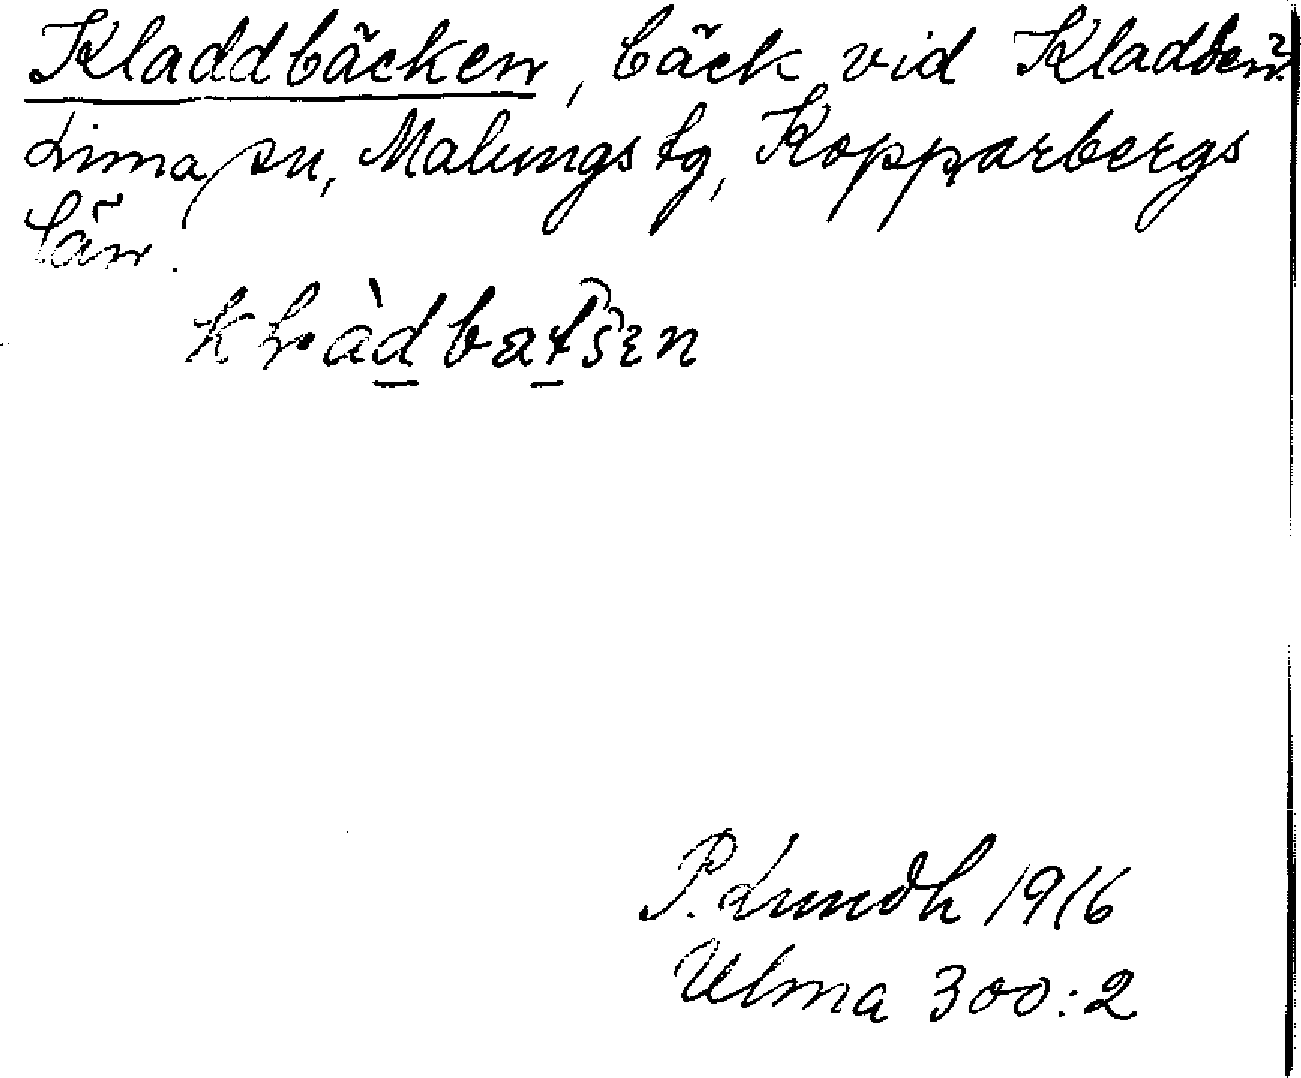 Kladdbäcken, bäck vid Kladden?
Lima sn, Malungs tg, Kopparbergs
län.
P. Lundh 1916
Ulma 300:2